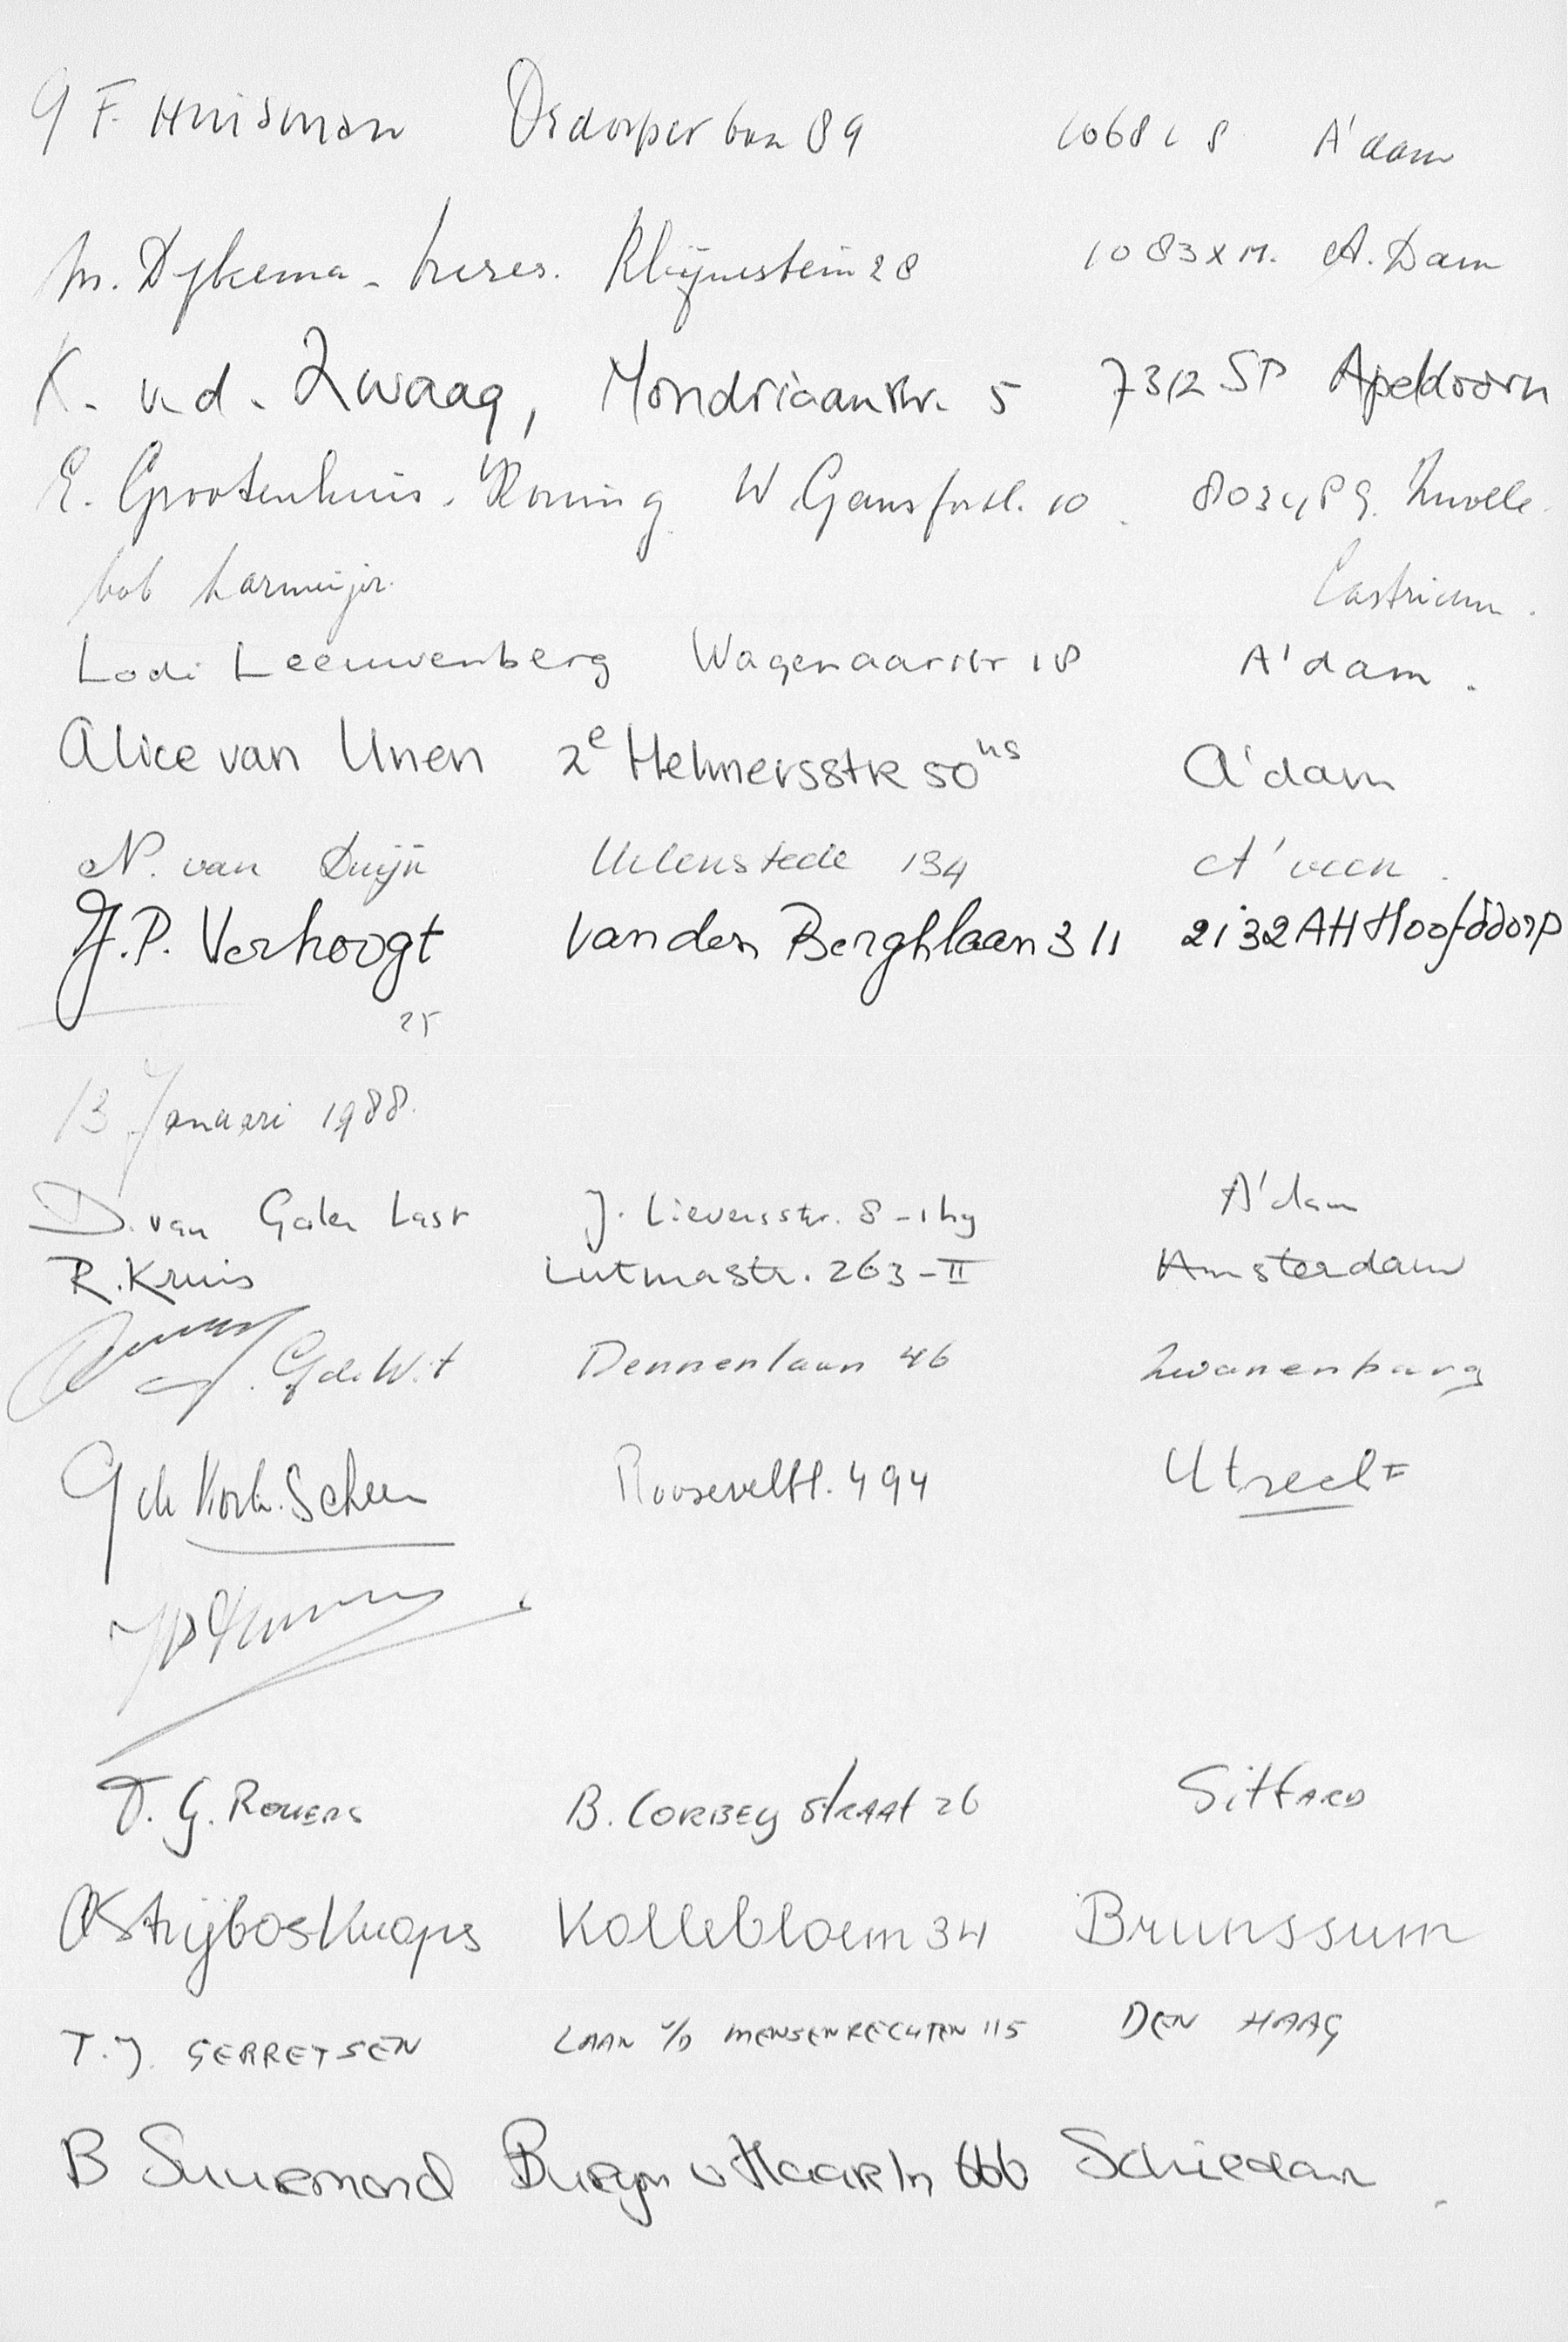 G F. Huisman Osdorper ban 89 1068 L 8 A'dam
M. Dykema - Rhijnestein 28 1083 XM. A. Dam
K. v.d. Zwaag, Mondriaanstr. 5 7312 SP Apeldoorn
E. Grootenhuis - Koning W. Gansfortl. 10 8034 PG. Zwolle.
bob Larmeijer. Castricum.
Lodi Leeuwenberg Wagenaarstr 18 A'dam.
Alice van Unen 2e Helmersstr 50 hs A'dam
N. van Duijn Uilenstede 134 A'veen.
J.P. Verhoogt van den Berghlaan 311 2132 AH Hoofddorp
25
13 Januari 1988.
D. van Galen Last J. Lievensstr. 8-1hg A'dam
R. Kruis Lutmastr. 263-II Amsterdam
G de Wit Dennenlaan 46 Zwanenburg
G de Scheer Rooseveltl. 494 Utrecht
T. G. Rouers B. Corbey straat 26 Sittard
Strijbos Knops Kollebloem 34 Brunssum
T.J. GERRETSEN LAAN v/d MENSENRECHTEN 115 DEN HAAG
B Suurmond Burgm v Haarln 66b Schiedam